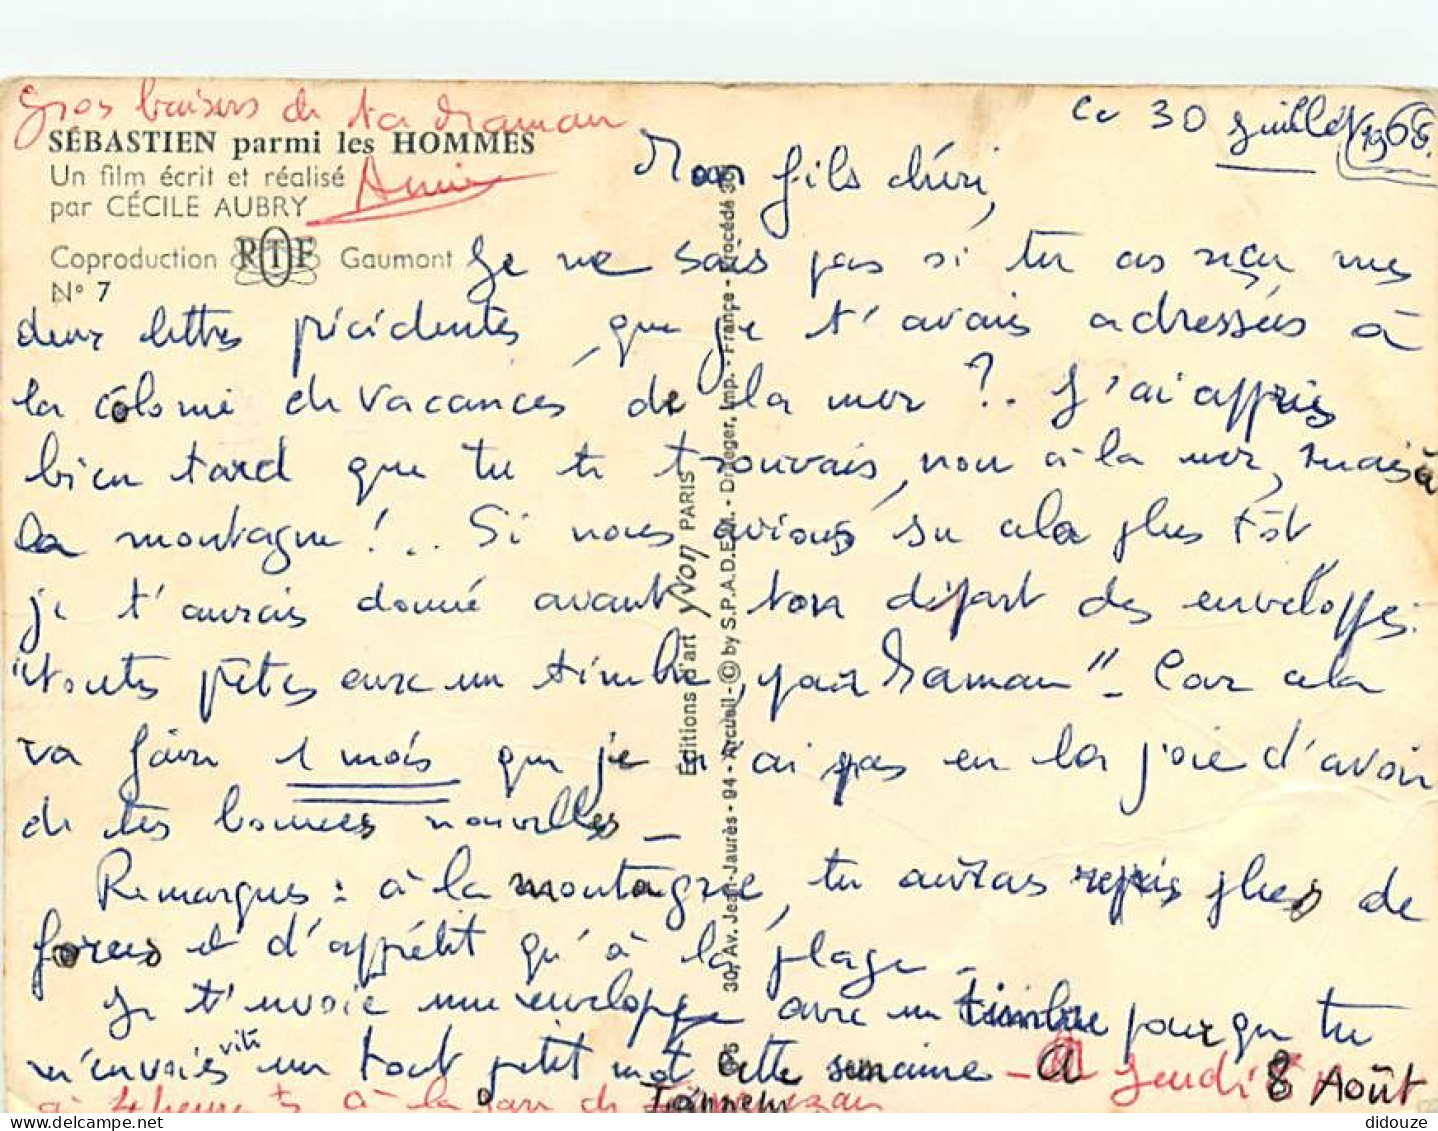 Gros baisers de ta Maman
SÉBASTIEN parmi les HOMMES
Un film écrit et réalisé
par CÉCILE AUBRY
Coproduction RTF Gaumont
N° 7
Ce 30 Juillet 1968.
Mon fils chéri,
Je ne sais pas si tu as reçu mes
deux lettres précédentes, que je t'avais adressées à
la colonie de vacances de la mer ?.. J'ai appris
bien tard que tu te trouvais, non à la mer, mais à
la montagne !... Si nous avions su cela plus tôt
je t'aurais donné avant ton départ des enveloppes
"toutes prêtes avec un timbre, pour Maman" - Car cela
va faire 1 mois que je n'ai pas eu la joie d'avoir
de tes bonnes nouvelles -
Remarques : à la montagne, tu auras repris plus de
forces et d'appétit qu'à la plage -
Je t'envoie une enveloppe avec un timbre pour que tu
m'envoies vite un tout petit mot cette semaine - A Jeudi 8 Août
à 4 heures à la gare de
Editions d'art yvon PARIS
30, Av. Jean-Jaurès - 94 - Arcueil - © by S.P.A.D.E.M. - Draeger, Imp. - France - Procédé 305
didouze